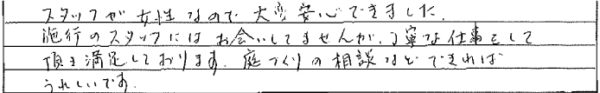 スタッフが女性なので大変安心できました。
施行のスタッフにはお会いしてませんが、丁寧な仕事をして
頂き満足しております。庭づくりの相談などできれば
うれしいです。